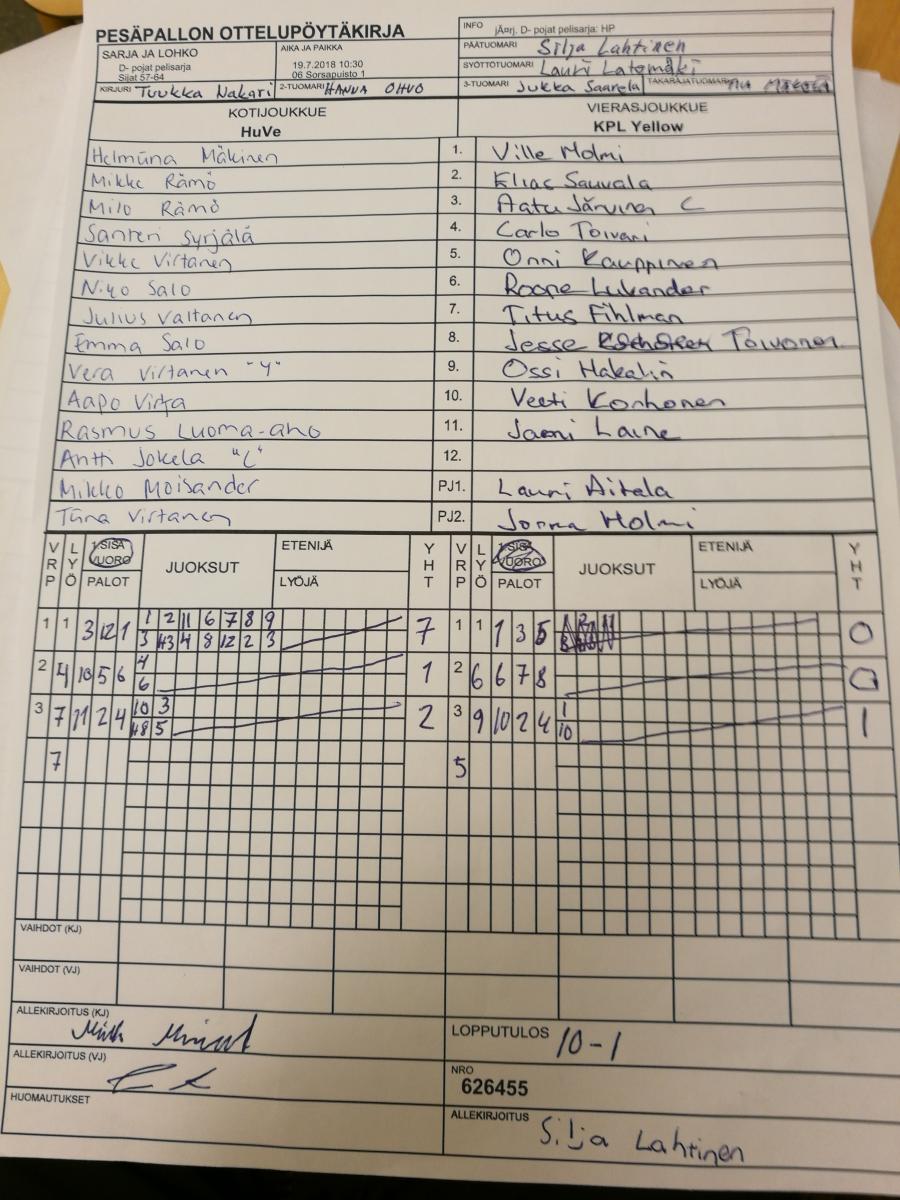 PESÄPALLON OTTELUPÖYTÄKIRJA
INFO jÄ¤rj. D- pojat pelisarja: HP
SARJA JA LOHKO
D- pojat pelisarja
Sijat 57-64
AIKA JA PAIKKA
19.7.2018 10:30
06 Sorsapuisto 1
PÄÄTUOMARI Silja Lahtinen
SYÖTTÖTUOMARI Lauri Latomäki
KIRJURI Tuukka Nakari 2-TUOMARI HANNA OHVO 3-TUOMARI Jukka Saarela TAKARAJATUOMARI
KOTIJOUKKUE VIERASJOUKKUE
HuVe KPL Yellow
Helmiina Mäkinen 1. Ville Holmi
Mikke Rämö 2. Elias Sauvala
Milo Rämö 3. Aatu Järvinen C
Santeri Syrjälä 4. Carlo Toivari
Vikke Virtanen 5. Onni Kauppinen
Niko Salo 6. Roope Lukander
Julius Valtanen 7. Titus Fihlman
Emma Salo 8. Jesse Toivonen
Vera Virtanen "Y" 9. Ossi Hakalin
Aapo Virta 10. Veeti Korhonen
Rasmus Luoma-aho 11. Jaani Laine
Antti Jokela "C" 12.
Mikko Moisander PJ1. Lauri Aitala
Tiina Virtanen PJ2. Jorma Holmi
VRP LYÖ 1 SISÄ VUORO PALOT JUOKSUT ETENIJÄ LYÖJÄ YHT VRP LYÖ 1 SISÄ VUORO PALOT JUOKSUT ETENIJÄ LYÖJÄ YHT
1 1 3 12 1 1 2 11 6 7 8 9 7 1 1 1 3 5 0
3 4 8 12 2 3
2 4 10 5 6 4 1 2 6 6 7 8 0
6
3 7 11 2 4 10 3 2 3 9 10 2 4 1 1
5 10
7 5
VAIHDOT (KJ)
VAIHDOT (VJ)
ALLEKIRJOITUS (KJ)
LOPPUTULOS 10-1
ALLEKIRJOITUS (VJ)
NRO
626455
HUOMAUTUKSET
ALLEKIRJOITUS Silja Lahtinen